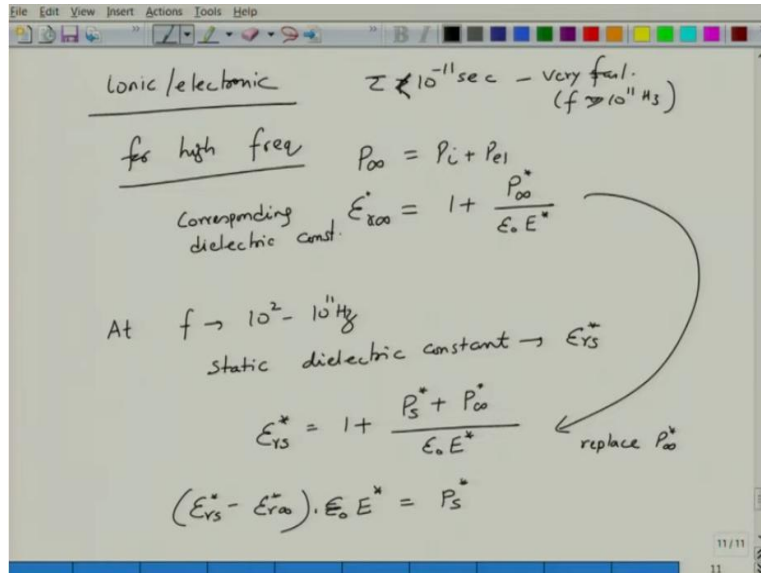 File Edit View Insert Actions Tools Help
Ionic/electronic τ < 10⁻¹¹ sec – very fast.
(f > 10¹¹ Hz)
for high freq P∞ = Pi + Pel
Corresponding dielectric const. ε*r∞ = 1 + P*∞ / ε₀E*
At f → 10² - 10¹¹ Hz
static dielectric constant → ε*rs
ε*rs = 1 + (P*s + P*∞) / ε₀E*
replace P*∞
(ε*rs - ε*r∞) . ε₀ E* = P*s
11/11
11